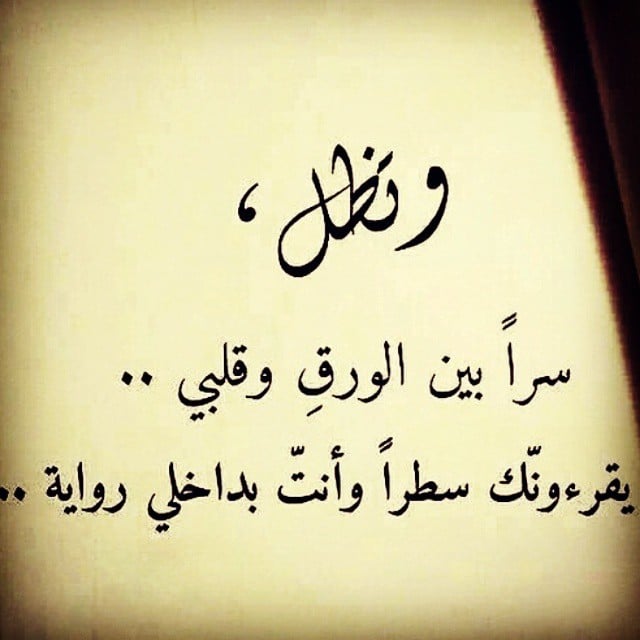 وتظل ،
سراً بين الورقِ وقلبي ..
يقرءونّك سطراً وأنتّ بداخلي رواية ..